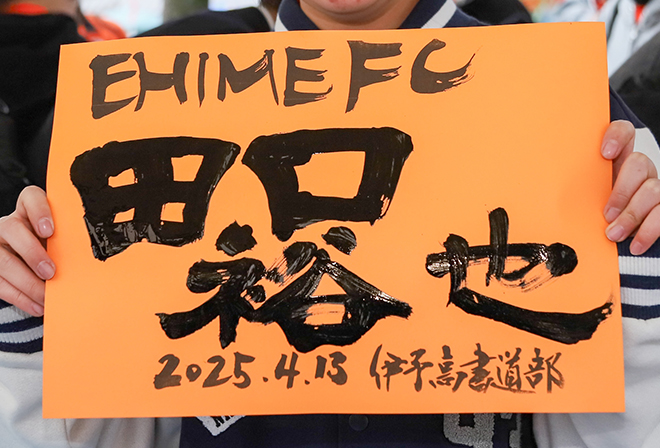 EHIME FC
田口
裕也
2025.4.13 伊予高書道部